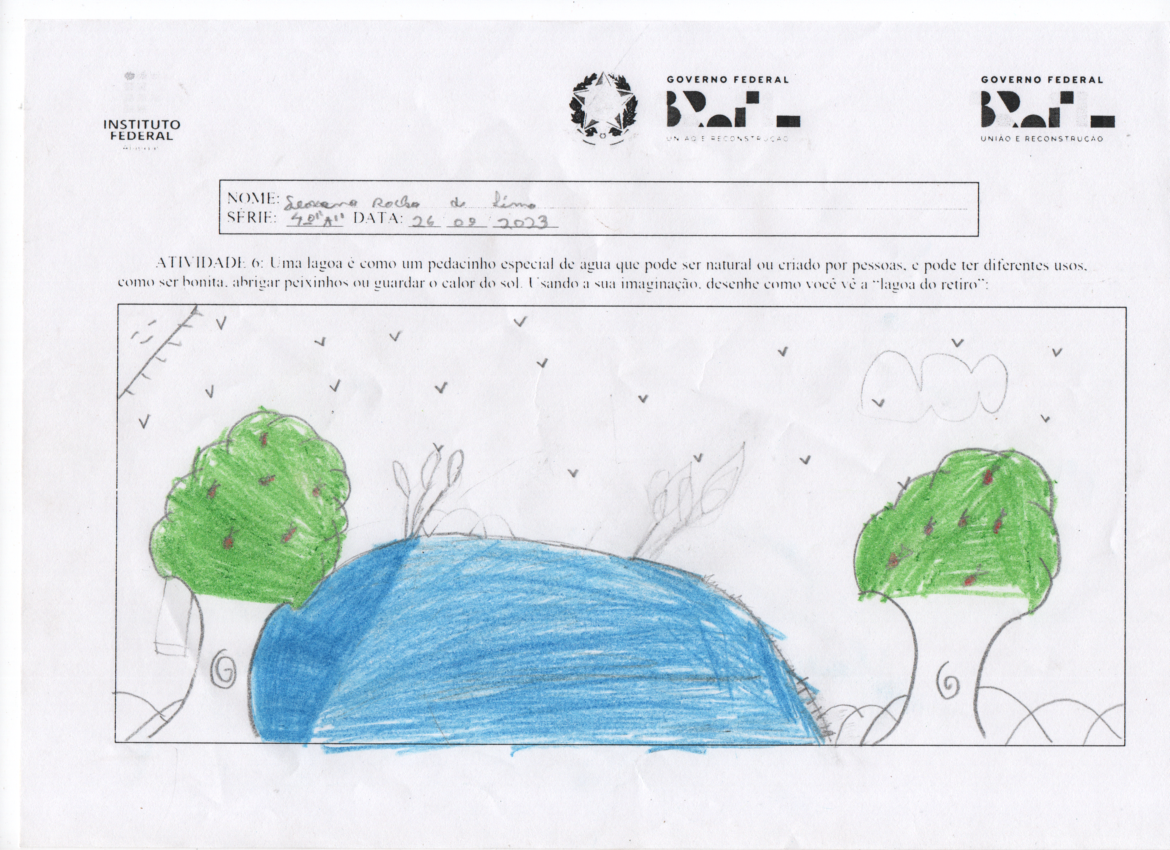 INSTITUTO
FEDERAL
GOVERNO FEDERAL
BRASIL
UNIÃO E RECONSTRUÇÃO
GOVERNO FEDERAL
BRASIL
UNIÃO E RECONSTRUÇÃO
NOME: Geovana Rocha de Lima
SÉRIE: 4º"A" DATA: 26 09 2023
ATIVIDADE 6: Uma lagoa é como um pedacinho especial de água que pode ser natural ou criado por pessoas, e pode ter diferentes usos,
como ser bonita, abrigar peixinhos ou guardar o calor do sol. Usando a sua imaginação, desenhe como você vê a “lagoa do retiro”: